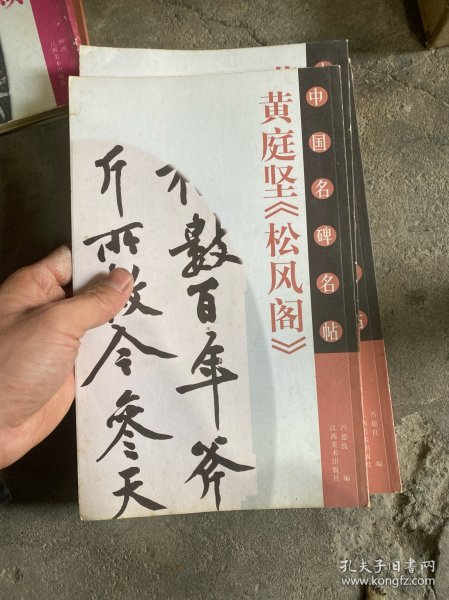 黄庭坚《松风阁》
中国名碑名帖
不数百年斧
斤所赦今参天
冯德良 编
江西美术出版社
孔夫子旧书网
www.kongfz.com